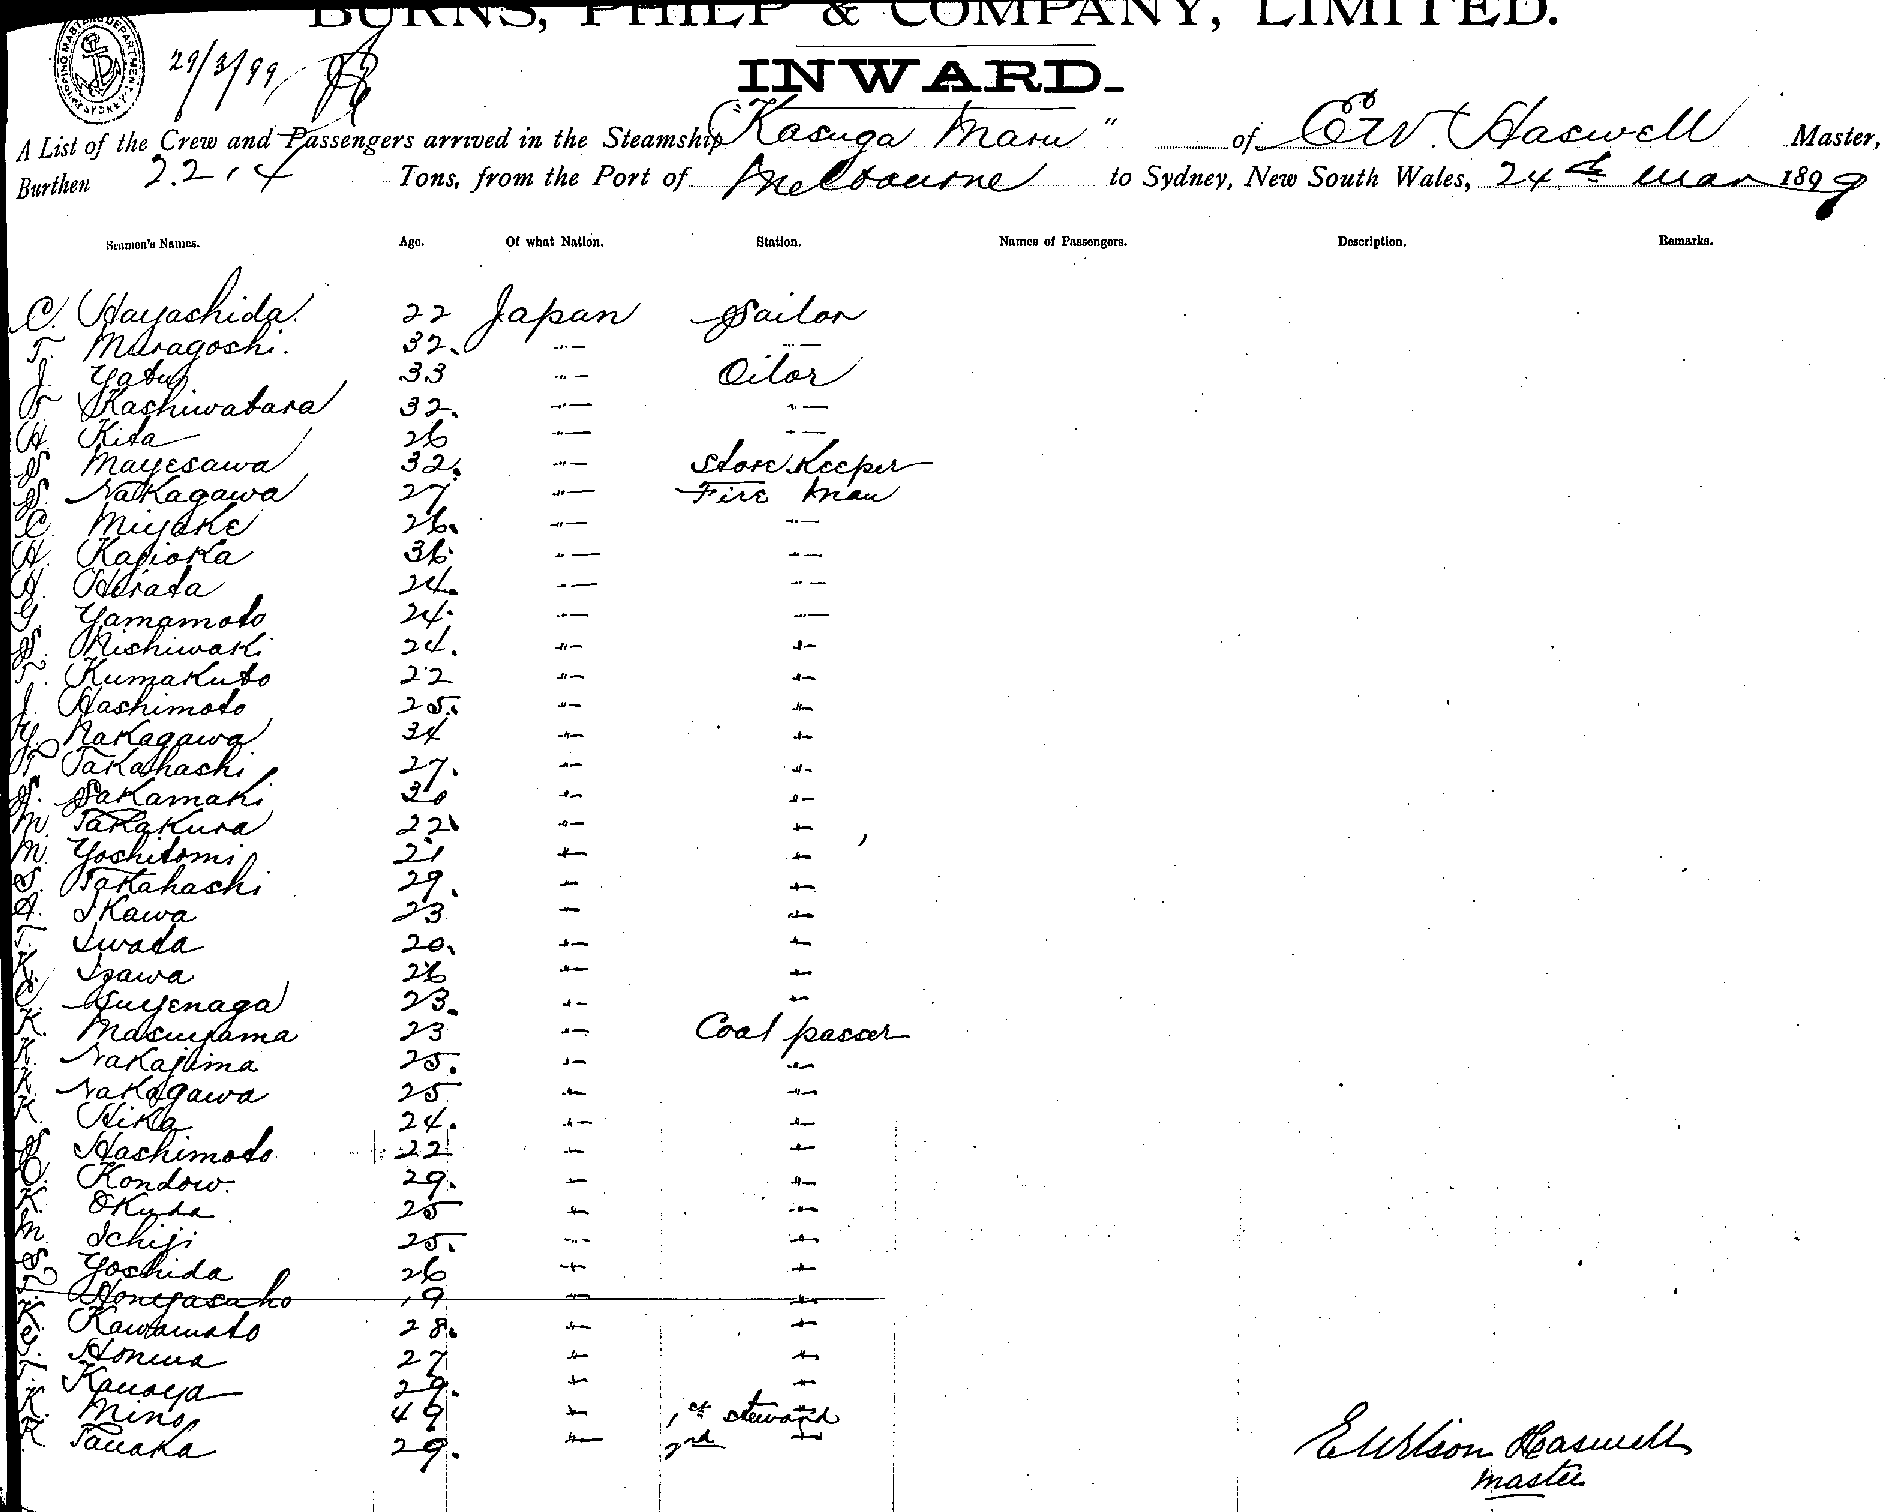 BURNS, PHILP & COMPANY, LIMITED.
29/3/99
INWARD.
A List of the Crew and Passengers arrived in the Steamship "Kasuga Maru" of E.W. Haswell Master,
Burthen 2214 Tons, from the Port of Melbourne to Sydney, New South Wales, 24th Mar 1899
Seamen's Names. Age. Of what Nation. Station. Names of Passengers. Description. Remarks.
C. Hayashida. 22 Japan Sailor
T. Muragoshi. 32. " "
J. Yatus 33 " Oilor
T Kashiwabara 32. " "
H. Kita 26 " "
S. Mayesawa 32. " Store Keeper
S. Nakagawa 27 " Fire Man
C. Miyake 26. " "
H. Kajioka 36 " "
H. Hirata 24. " "
G. Yamamoto 24. " "
S. Nishiwaki 24. " "
T. Kumakuto 22 " "
J. Hashimoto 25. " "
Y. Nakagawa 34 " "
T Takahashi 27. " "
S. Sakamaki 30 " "
M. Takakura 22 " "
M. Yoshitomi 21 " "
S. Takahashi 29. " "
A. Ikawa 23 " "
T. Iwata 20. " "
K. Izawa 26 " "
C. Suyenaga 23. " "
K. Masuyama 23 " Coal passer
K. Nakajima 25. " "
K. Nakagawa 25 " "
K Hika 24. " "
S Hashimoto 22 " "
C. Kondow. 29. " "
K. Okuda 25 " "
M. Ichiji 25. " "
S. Yoshida 26 " "
T. Honyasuho 19 " "
K. Kawamoto 28. " "
G. Honma 27 " "
T. Kanaya 29. " "
K. Mino 49 " 1st steward
K Tanaka 29. " 2nd "
E Wilson Haswell
Master